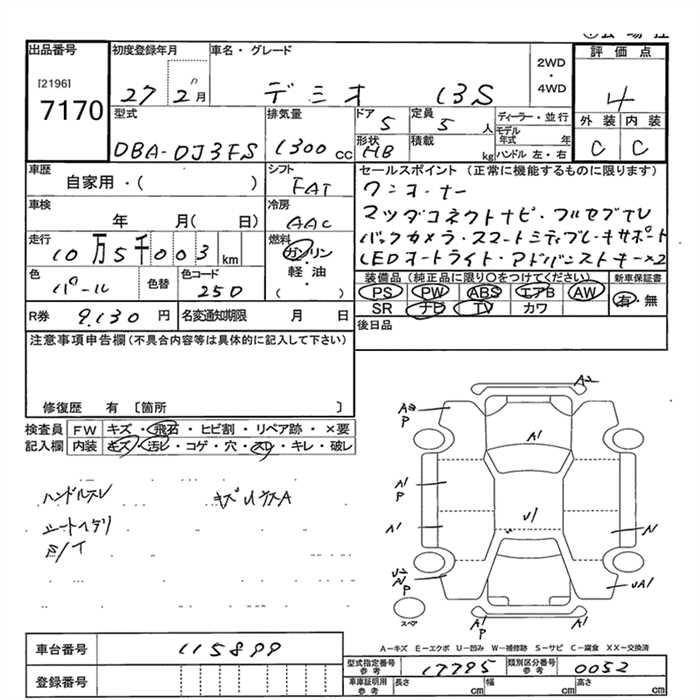 出品番号
[2196]
7170
初度登録年月
27 2月
車名・グレード
デミオ 13S
2WD
・
4WD
評価点
4
外装 内装
C C
型式
DBA-DJ3FS
排気量
1300 cc
ドア
5
定員
5 人
形状
HB
積載
kg
ディーラー・並行
モデル年式 年
ハンドル 左・右
車歴
自家用・( )
シフト
FAT
車検
年 月( 日)
冷房
AAC
走行
10万5千003 km
燃料
ガソリン
・
軽油
( )
色
パール
色替
色コード
25D
R券 9.130 円
名変通知期限 月 日
セールスポイント (正常に機能するものに限ります)
ワンオーナー
マツダコネクトナビ・フルセグTV
バックカメラ・スマートシティブレーキサポート
LEDオートライト・アドバンストキー×2
装備品(純正品に限り○をつけてください)
PS PW ABS エアB AW
SR ナビ TV カワ
新車保証書
有・無
後日品
注意事項申告欄(不具合内容等は具体的に記入して下さい)
修復歴 有 〔箇所 〕
検査員記入欄
FW キズ・飛石・ヒビ割・リペア跡・×要
内装 キズ・汚レ・コゲ・穴・スレ・キレ・破レ
ハンドルスレ
シートヘタリ
A2
P
A1
A1
P
A1
U1
P
スペア
A1
P
A1
A-キズ E-エクボ U-凹み W-補修跡 S-サビ C-腐食 XX-交換済
車台番号 115899
登録番号
型式指定番号 参考 17795
類別区分番号 参考 0052
車庫証明用 参考 長さ cm 幅 cm 高さ cm